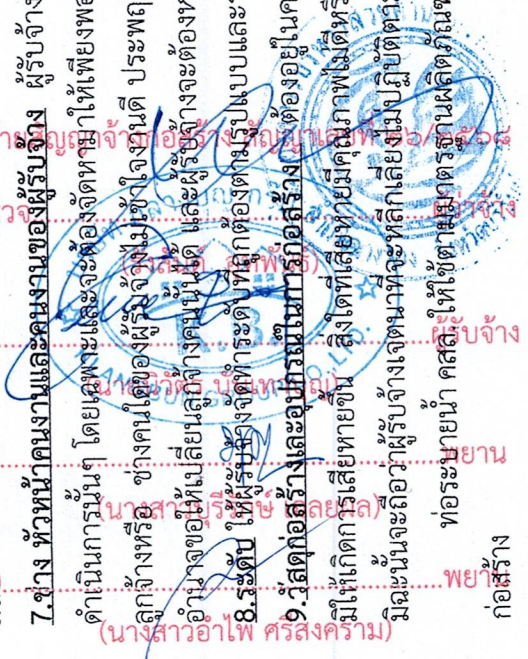 7.ช่าง หัวหน้าคนงานและคนงานของผู้รับจ้าง ผู้รับจ้าง
ดำเนินการนั้นๆ โดยเฉพาะและจะต้องจัดหามาให้เพียงพอ
ลูกจ้างหรือ ช่างคนใดของผู้รับจ้างไม่เข้าใจงานดี ประพฤ
อำนาจขอให้เปลี่ยนลูกจ้างคนนั้นได้ และผู้รับจ้างจะต้องห
8.ระดับ ให้ผู้รับจ้างจัดทำระดับที่ถูกต้องตามรูปแบบและ
9.วัสดุก่อสร้างและอุปกรณ์ในการก่อสร้าง ต้องอยู่ในค
มิให้เกิดการเสียหายขึ้น สิ่งใดที่เสียหายมีคุณภาพไม่ดีหรื
มิฉะนั้นจะถือว่าผู้รับจ้างเจตนาที่จะหลีกเลี่ยงไม่ปฏิบัติตา
ท่อระบายน้ำ คสล. ให้ใช้ตามมาตรฐานผลิตภัณฑ
ก่อสร้าง
ายสัญญาจ้างก่อสร้าง สัญญาเลขที่ ๒๖/๒๕๖๘
ผู้ว่าจ้าง
ผู้รับจ้าง
(นายนิวัตร
พยาน
(นางสาวบุรีรักษ์
พยาน
(นางสาวอำไพ ศรีสงคราม)